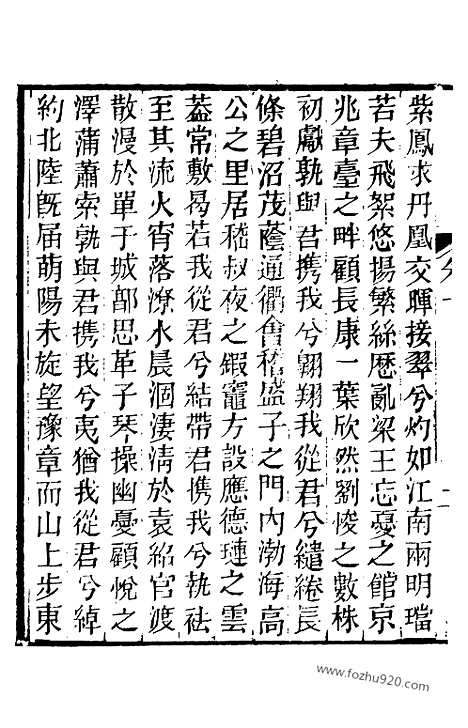 紫鳳求丹凰交暉接翠兮灼如江南兩明璫
若夫飛絮悠揚繁絲歷亂梁王忘憂之館京
兆章臺之畔顧長康一葉欣然劉悛之數株
初獻孰與君攜我兮翱翔我從君兮繾綣長
條碧沼茂蔭通衢會稽盛子之門內渤海高
公之里居嵇叔夜之鍜竈方設應德璉之雲
葢常敷曷若我從君兮結帶君攜我兮執袪
至其流火宵落潦水晨涸淒清於袁紹官渡
散漫於單于城部思革子琴操幽憂顧悅之
澤蒲蕭索孰與君攜我兮夷猶我從君兮綽
約北陸旣届萌陽未旋望豫章而山上步東
www.fozhu920.com